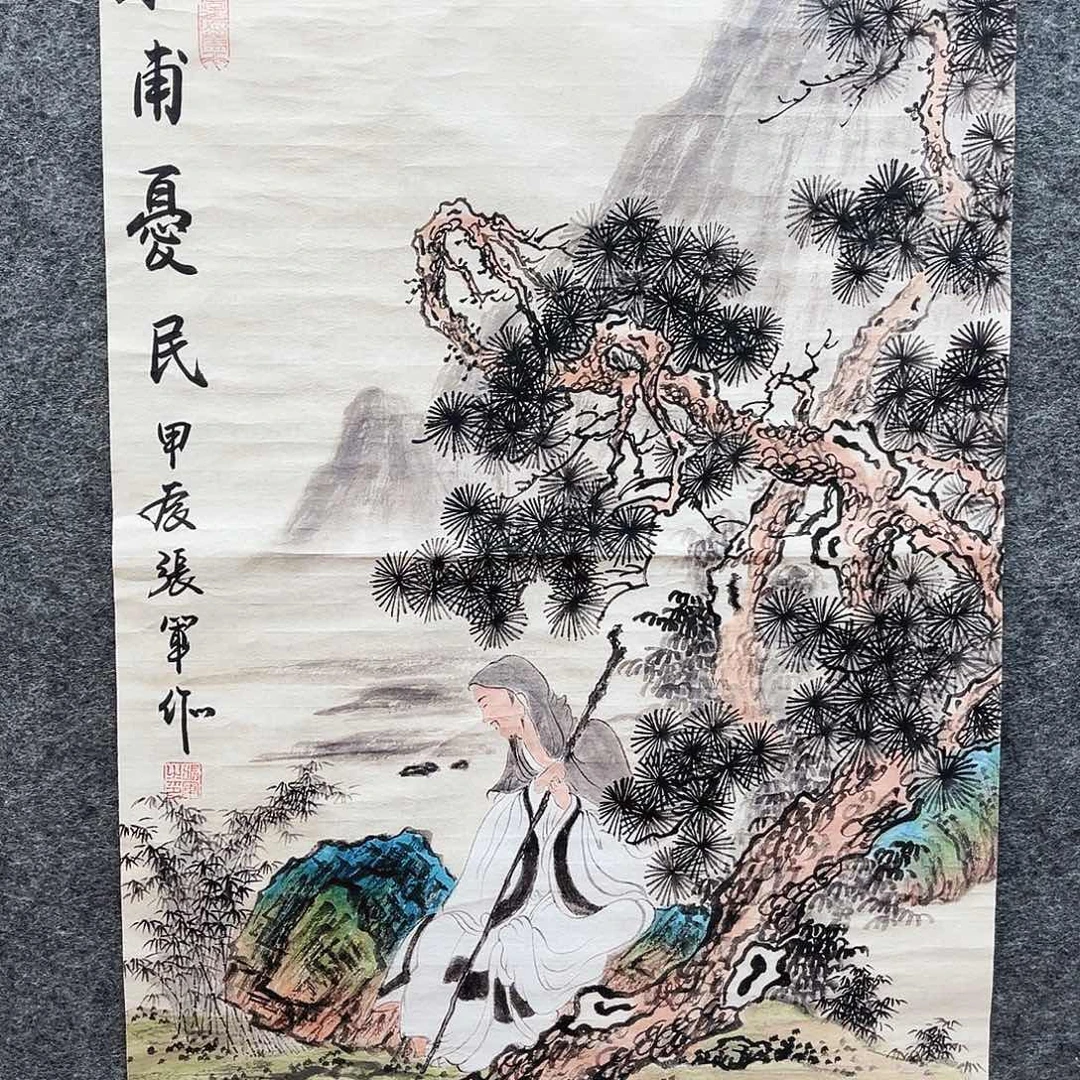 甫憂民甲辰張軍作